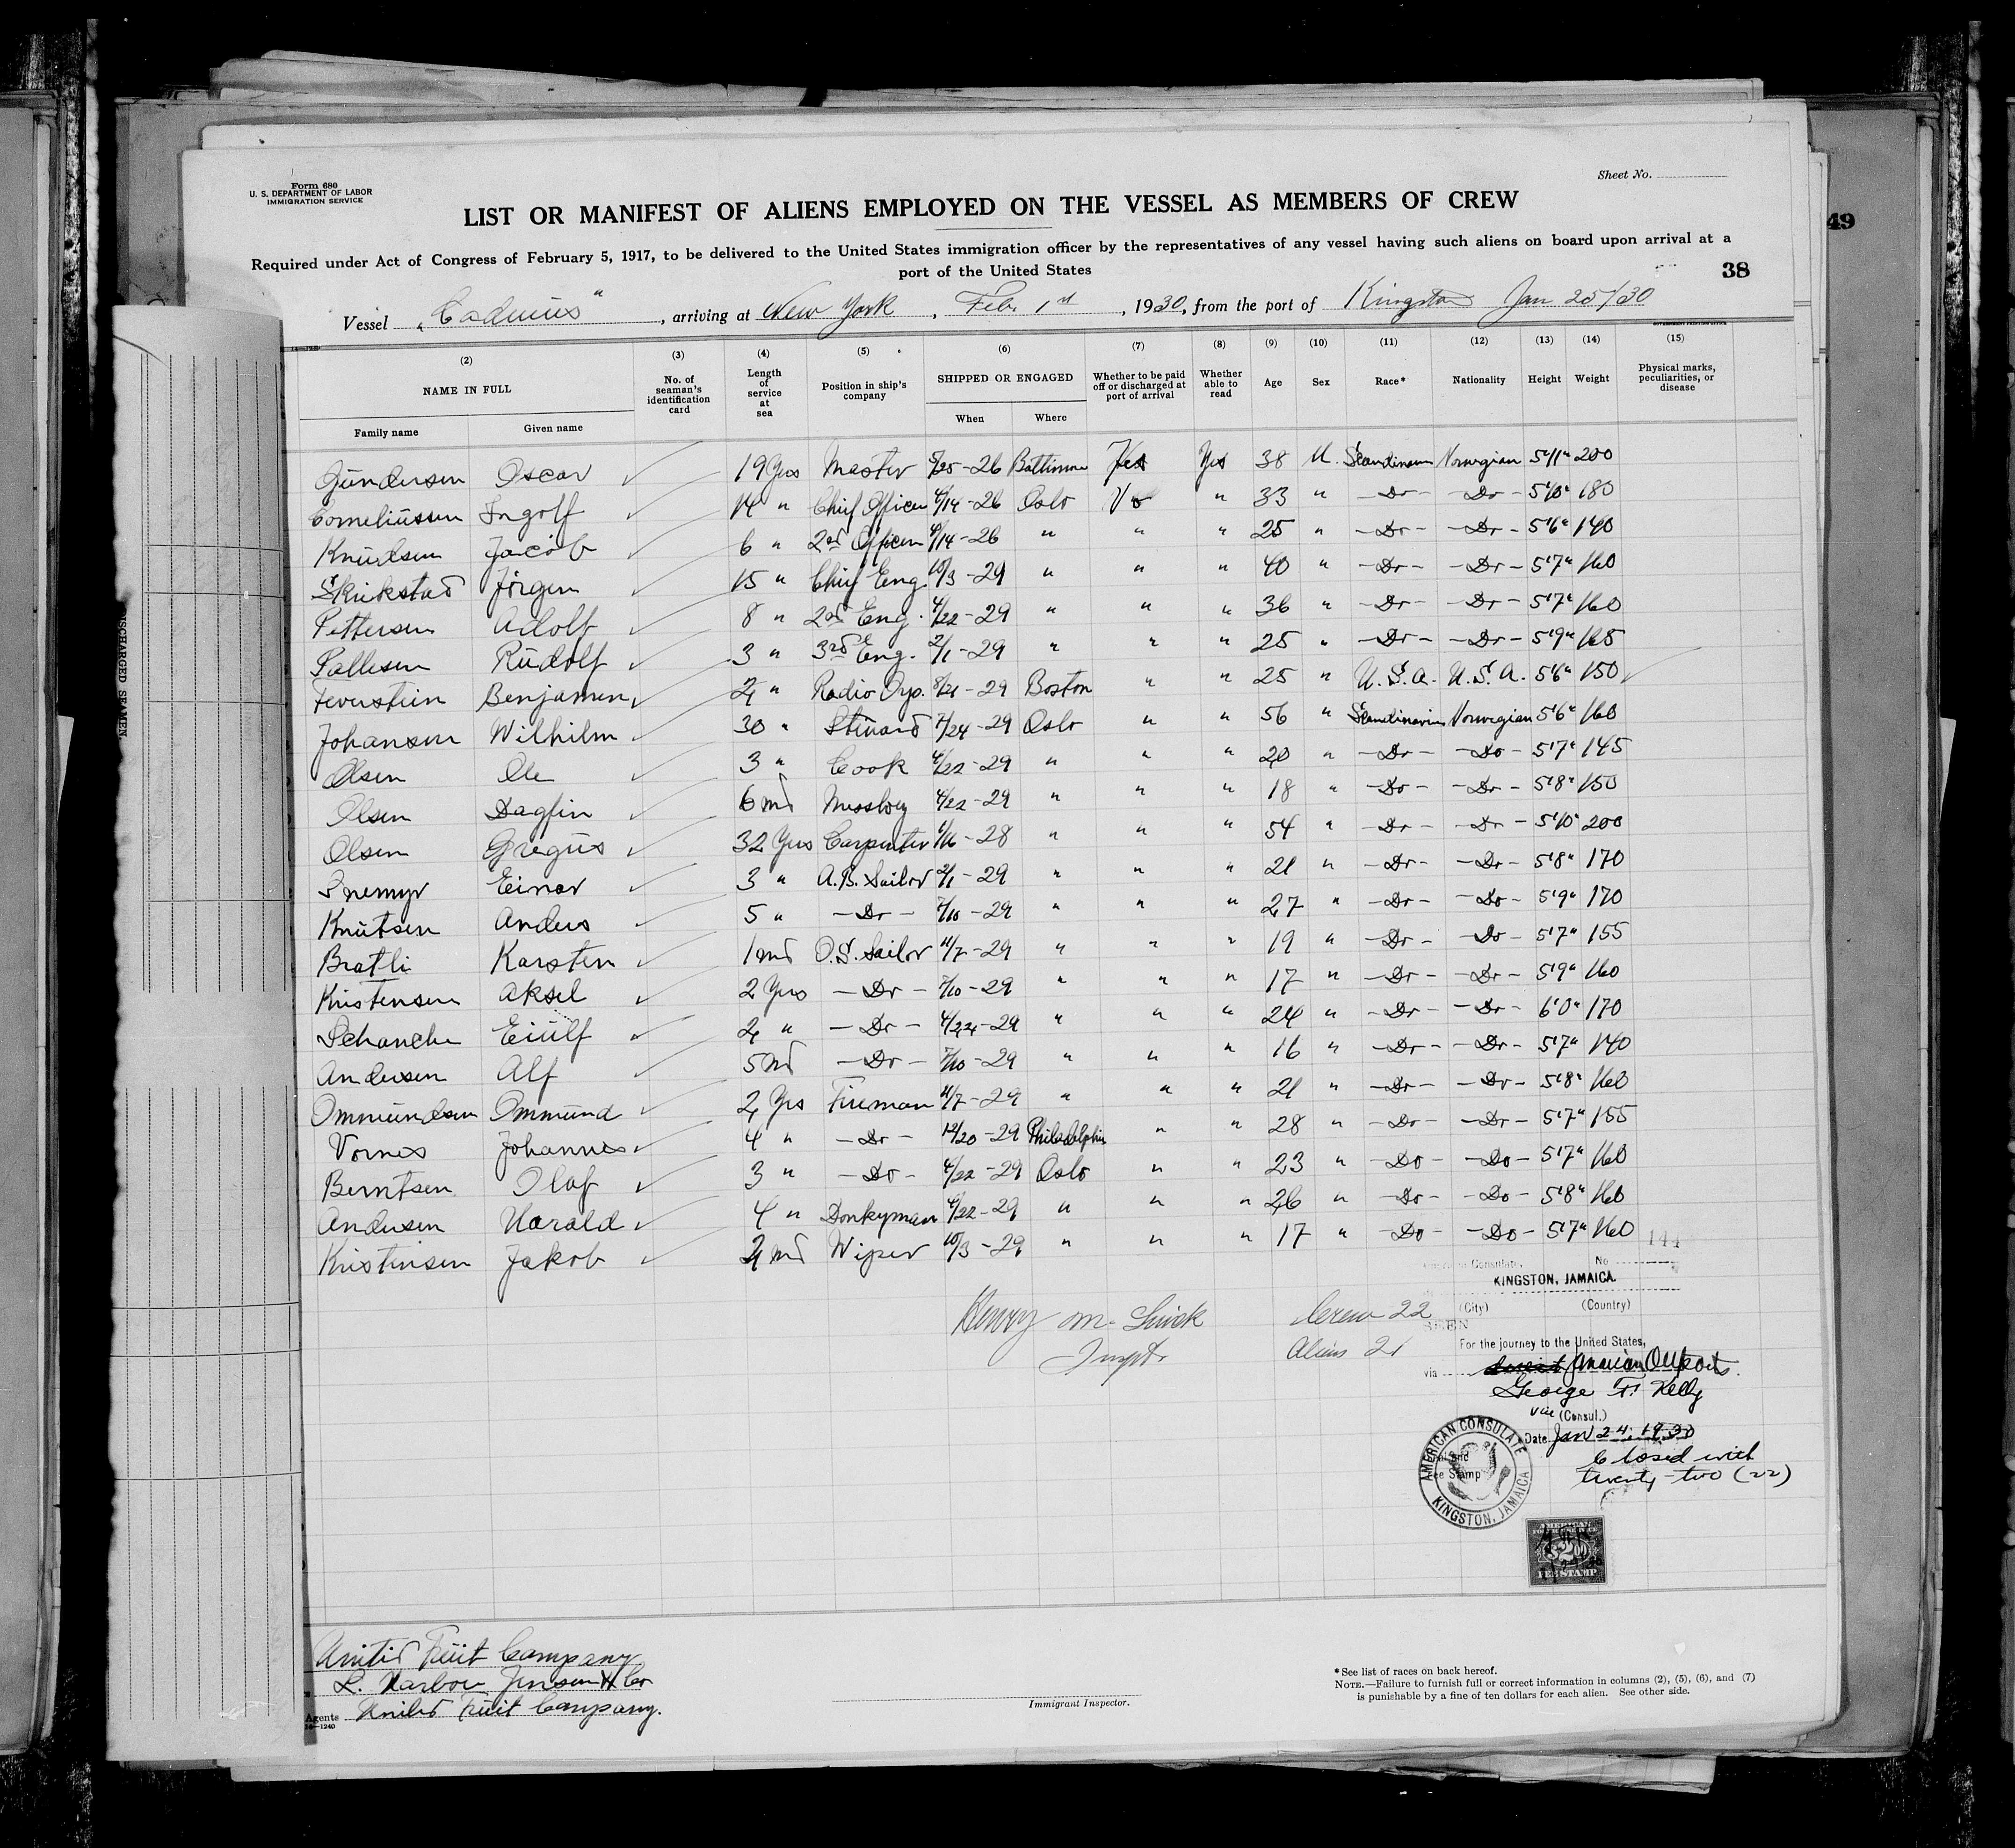 Form 680
U. S. DEPARTMENT OF LABOR
IMMIGRATION SERVICE
Sheet No.
LIST OR MANIFEST OF ALIENS EMPLOYED ON THE VESSEL AS MEMBERS OF CREW
49
Required under Act of Congress of February 5, 1917, to be delivered to the United States immigration officer by the representatives of any vessel having such aliens on board upon arrival at a
port of the United States
38
Vessel "Cadmus", arriving at New York, Feb. 1st, 1930, from the port of Kingston Jan 25/30
(2) (3) (4) (5) (6) (7) (8) (9) (10) (11) (12) (13) (14) (15)
NAME IN FULL No. of seaman's identification card Length of service at sea Position in ship's company SHIPPED OR ENGAGED Whether to be paid off or discharged at port of arrival Whether able to read Age Sex Race* Nationality Height Weight Physical marks, peculiarities, or disease
Family name Given name When Where
Gundersen Oscar 19 Yrs Master 5/25-26 Baltimore Yes Yes 38 M. Scandinavn Norwegian 5'11" 200
Corneliussen Ingolf 14 " Chief Officer 4/14-26 Oslo No " 33 " -Do- -Do- 5'10" 180
Knudsen Jacob 6 " 2nd Officer 4/14-26 " " " 25 " -Do- -Do- 5'6" 140
Skrikstad Jörgen 15 " Chief Eng. 10/3-29 " " " 40 " -Do- -Do- 5'7" 160
Pettersen Adolf 8 " 2nd Eng. 4/22-29 " " " 36 " -Do- -Do- 5'7" 160
Pallesen Rudolf 3 " 3rd Eng. 2/1-29 " " " 25 " -Do- -Do- 5'9" 165
Feverstein Benjamen 2 " Radio Op. 8/21-29 Boston " " 25 " U.S.A. U.S.A. 5'6" 150
Johansen Wilhilm 30 " Steward 7/24-29 Oslo " " 56 " Scandinavian Norwegian 5'6" 160
Olsen Ole 3 " Cook 4/22-29 " " " 20 " -Do- -Do- 5'7" 145
Olsen Dagfin 6 md Messboy 4/22-29 " " " 18 " -Do- -Do- 5'8" 150
Olsen Gregus 32 Yrs Carpenter 1/16-28 " " " 54 " -Do- -Do- 5'10" 200
Snemyr Einar 3 " A.B. Sailor 2/1-29 " " " 21 " -Do- -Do- 5'8" 170
Knutsen Anders 5 " -Do- 7/10-29 " " " 27 " -Do- -Do- 5'9" 170
Bratli Karsten 1 md O.S. Sailor 11/7-29 " " " 19 " -Do- -Do- 5'7" 155
Kristensen Aksel 2 Yrs -Do- 7/10-29 " " " 17 " -Do- -Do- 5'9" 160
Schanche Eiulf 2 " -Do- 4/22-29 " " " 24 " -Do- -Do- 6'0" 170
Andersen Alf 5 md -Do- 7/10-29 " " " 16 " -Do- -Do- 5'7" 140
Ommundsen Ommund 2 Yrs Fireman 11/7-29 " " " 21 " -Do- -Do- 5'8" 160
Vornes Johannes 4 " -Do- 12/20-29 Philadelphia " " 28 " -Do- -Do- 5'7" 155
Berntsen Olaf 3 " -Do- 4/22-29 Oslo " " 23 " -Do- -Do- 5'7" 160
Andersen Harald 4 " Donkyman 4/22-29 " " " 26 " -Do- -Do- 5'8" 160
Kristensen Jakob 2 md Wiper 10/3-29 " " " 17 " -Do- -Do- 5'7" 160
144
American Consulate, No
KINGSTON, JAMAICA.
(City) (Country)
SEEN
For the journey to the United States,
via American Outports.
George F. Kelly
Vice (Consul.)
Date Jan 24, 1930
Closed with
twenty-two (22)
Fee Stamp
AMERICAN CONSULATE
KINGSTON, JAMAICA
AMERICAN
$2
FEE STAMP
Henry M.
Inspt.
Crew 22
Aliens 21
DISCHARGED SEAMEN
United Fruit Company
L. Harboe Jensen & Co
Agents United Fruit Company.
16-1240
Immigrant Inspector.
*See list of races on back hereof.
NOTE.—Failure to furnish full or correct information in columns (2), (5), (6), and (7)
is punishable by a fine of ten dollars for each alien. See other side.